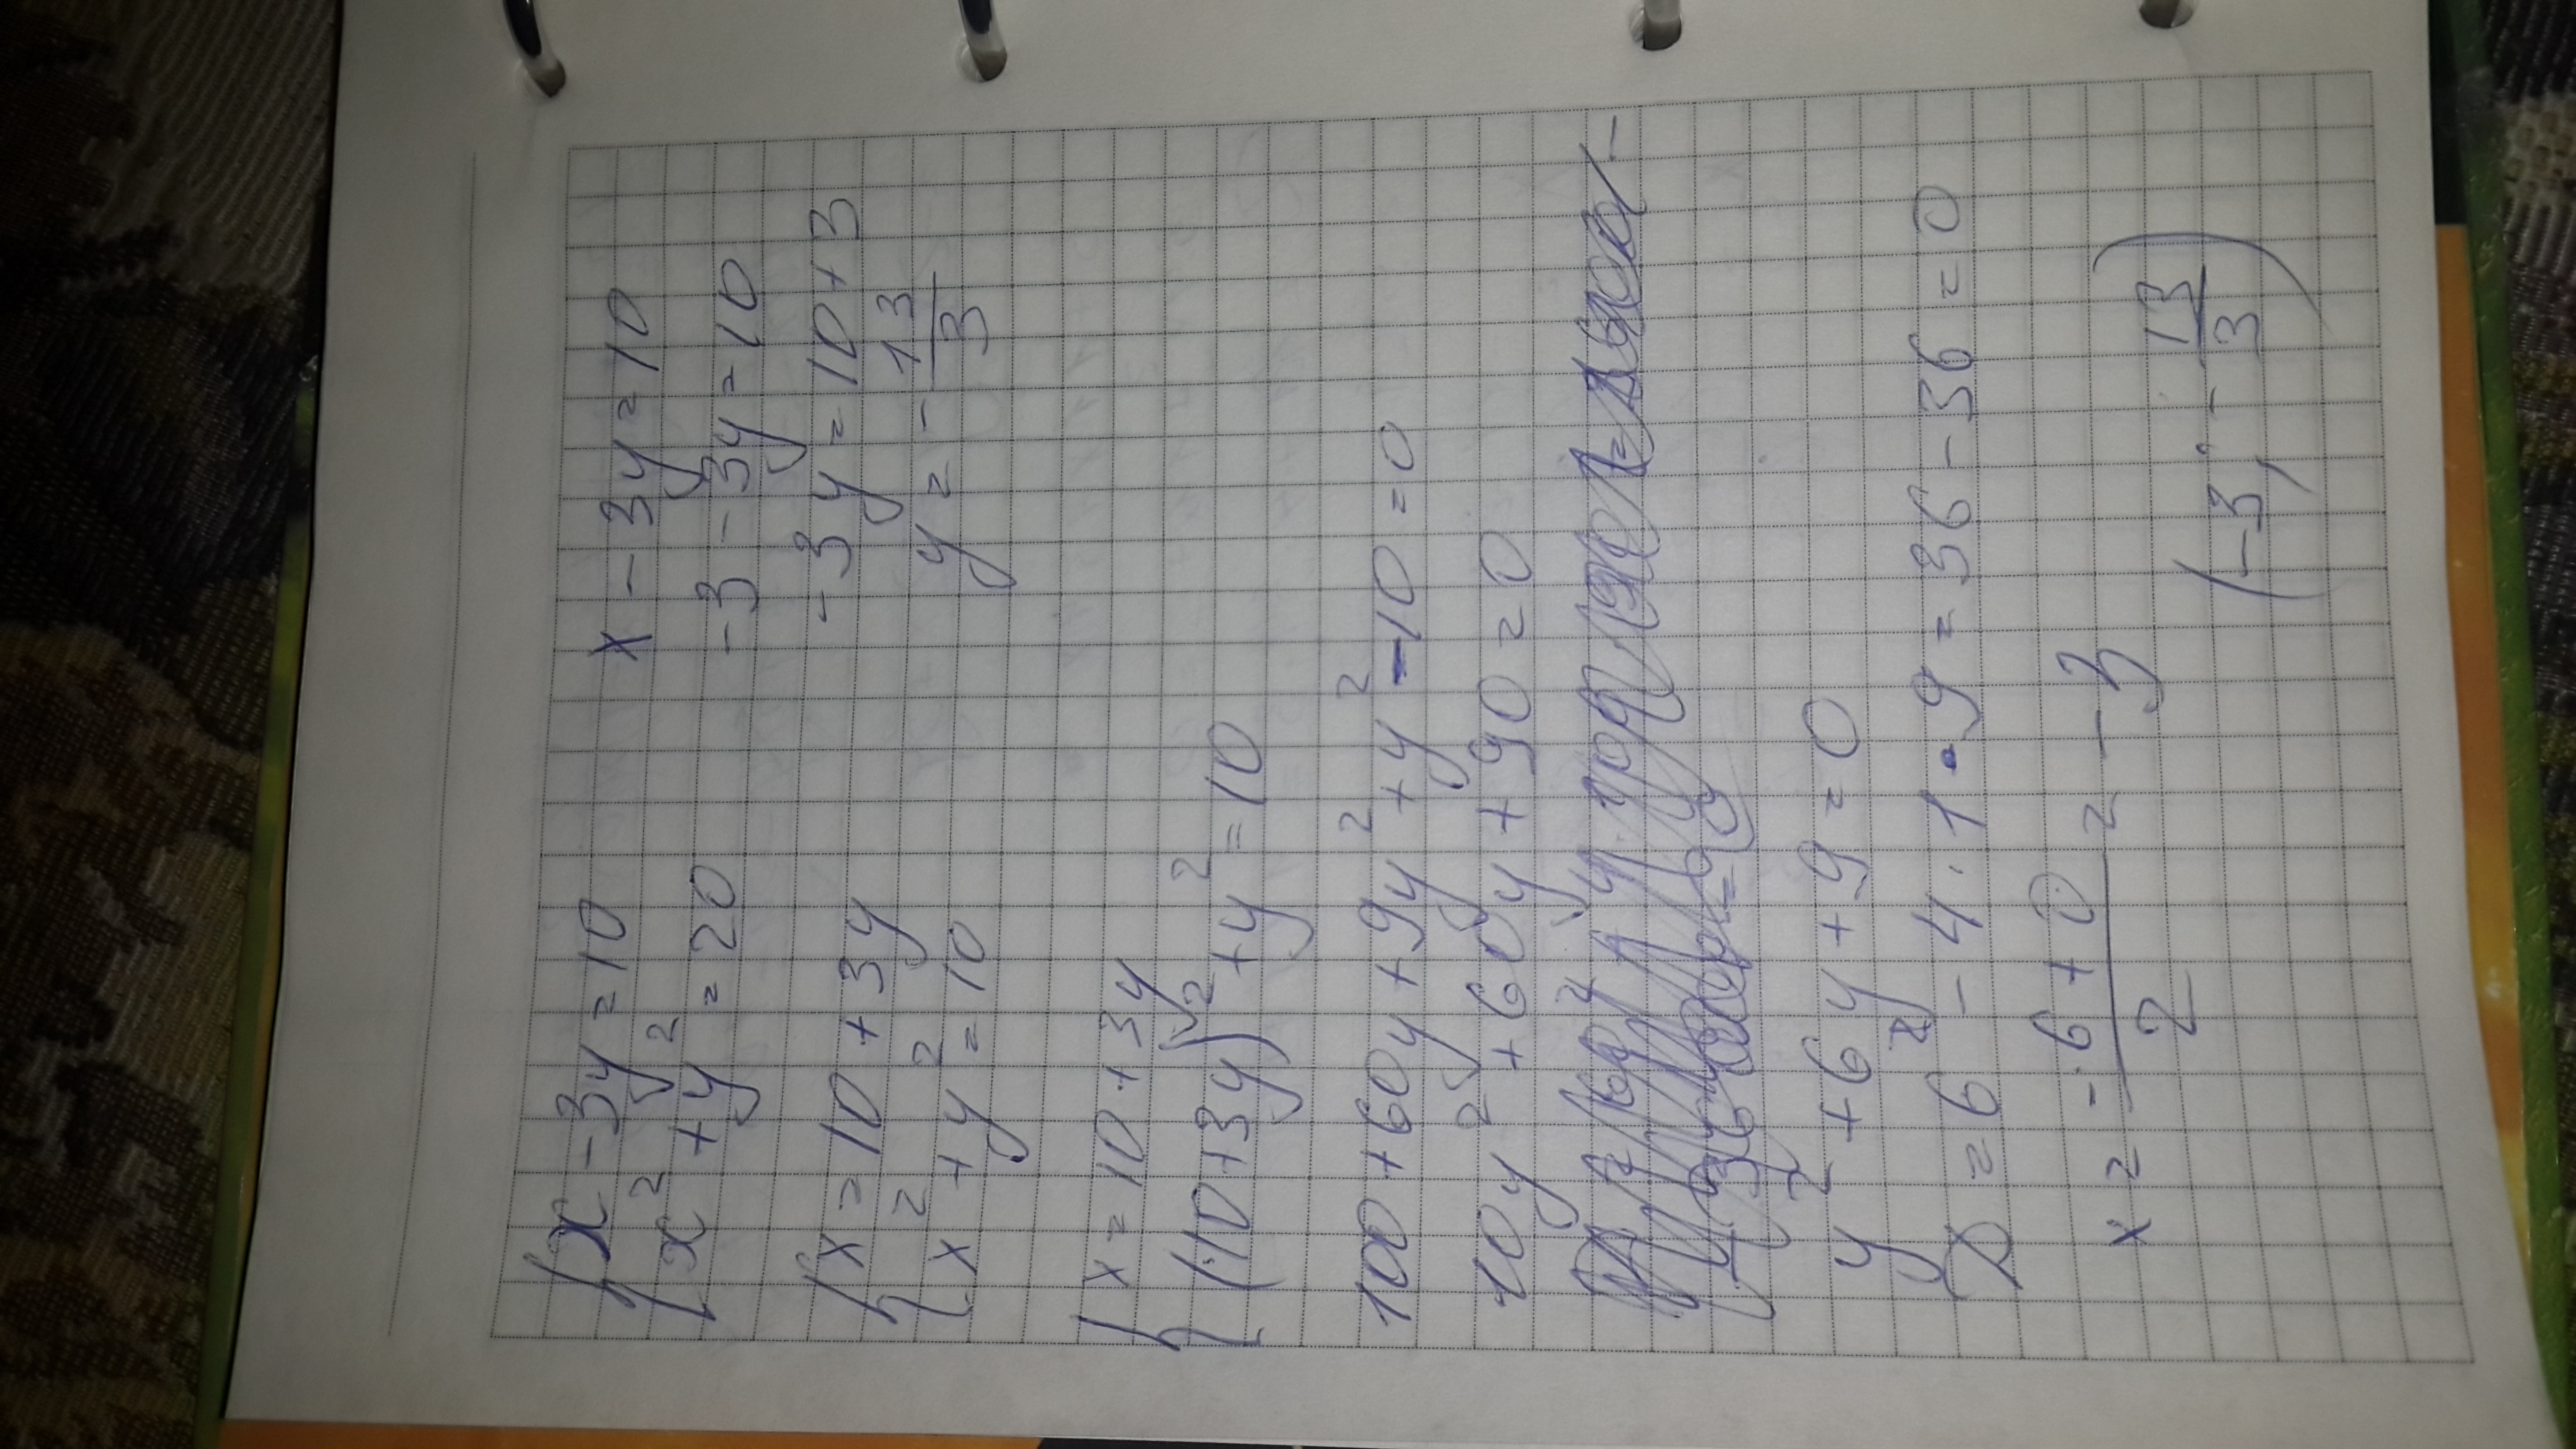 {x - 3y = 10
x² + y² = 20
{x = 10 + 3y
x² + y² = 10
{x = 10 + 3y
(10 + 3y)² + y² = 10
100 + 60y + 9y² + y² - 10 = 0
10y² + 60y + 90 = 0
y² + 6y + 9 = 0
D = 6² - 4 · 1 · 9 = 36 - 36 = 0
x = -6 + 0 / 2 = -3
x - 3y = 10
-3 - 3y = 10
-3y = 10 + 3
y = - 13/3
(-3; - 13/3)